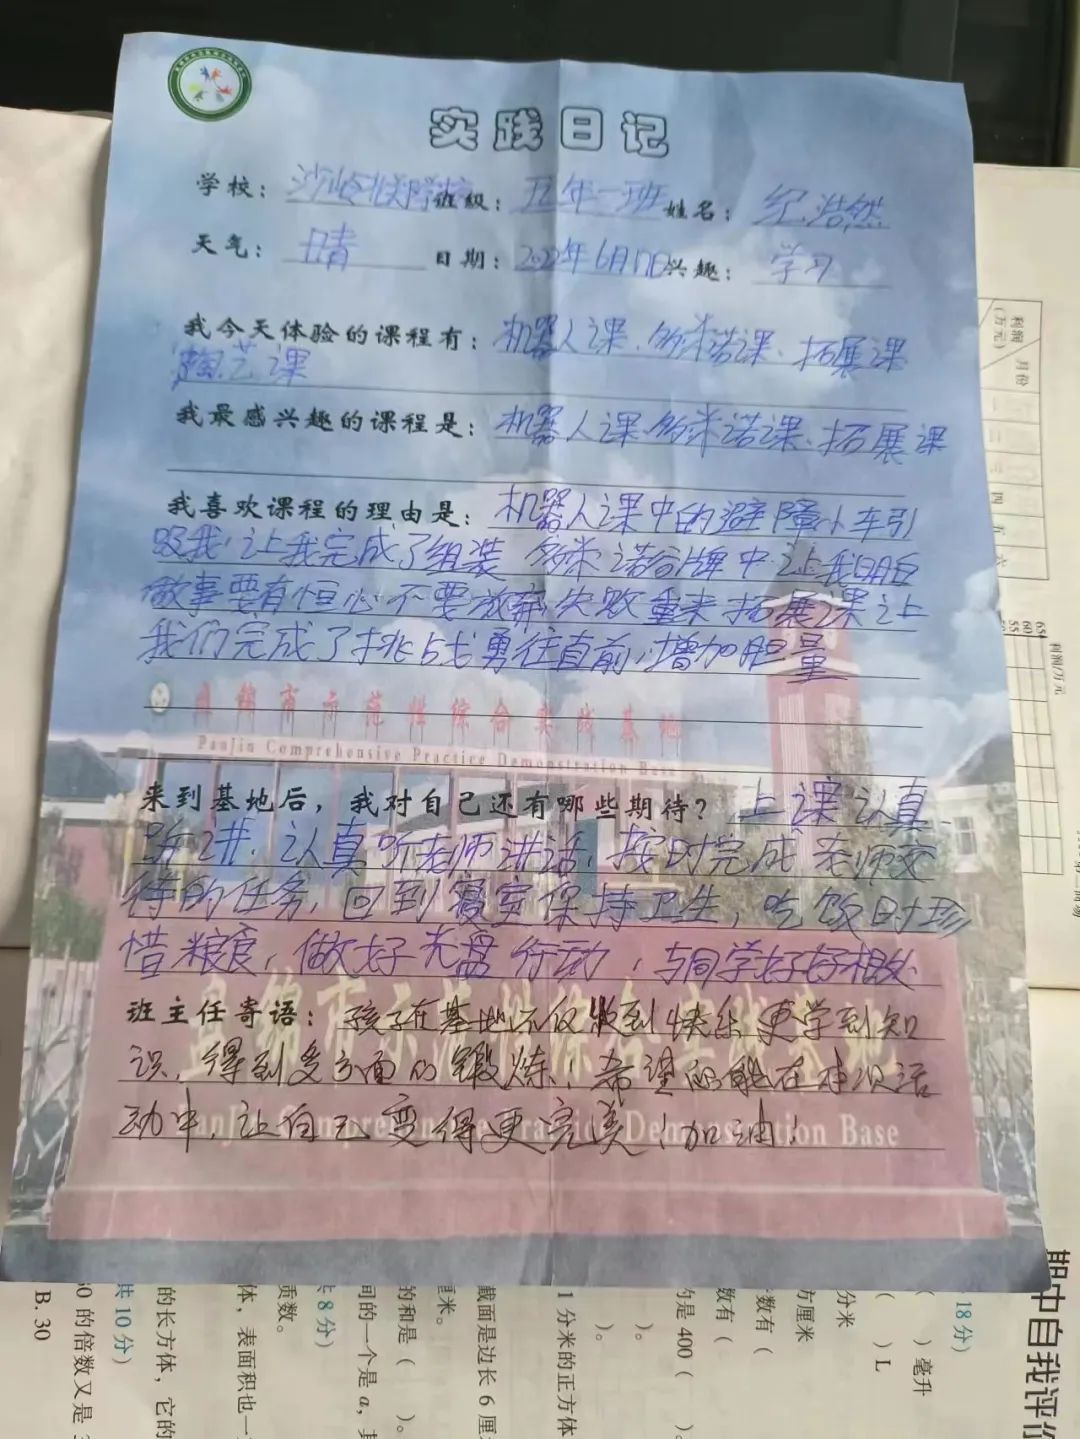 实践日记
学校：沙岭 班级：五年一班 姓名：纪浩然
天气：晴 日期：2022年6月17日 兴趣：学习
我今天体验的课程有：机器人课、多米诺课、拓展课
陶艺课
我最感兴趣的课程是：机器人课、多米诺课、拓展课
我喜欢课程的理由是：机器人课中的避障小车引
吸我，让我完成了组装 多米诺骨牌中让我明白
做事要有恒心不要放弃失败重来 拓展课让
我们完成了挑战勇往直前，增加胆量
盘锦市示范性综合实践基地
PanJin Comprehensive Practice Demonstration Base
来到基地后，我对自己还有哪些期待？上课认真
听讲，认真听老师讲话，按时完成老师交
待的任务，回到寝室保持卫生，吃饭时珍
惜粮食，做好光盘行动，与同学好好相处
班主任寄语：孩子在基地不仅收到快乐更学到知
识，得到多方面的锻炼！希望你能在本次活
动中，让自己变得更完美！加油！
盘锦市示范性综合实践基地
PanJin Comprehensive Practice Demonstration Base
利润
(万元)
月份
一
二
三
四
五
六
利润/万元
65
60
55
期中自我评价
18分)
(  )毫升
(  )L
分米
方厘米
数有(
数有(
约是400(  )。
)。
)。
1分米的正方体
截面是边长6厘
厘米。
的和是(  )。
间的一个是a，其
共8分)
质数。
体，表面积也一
的长方体，它的
共10分)
B. 30